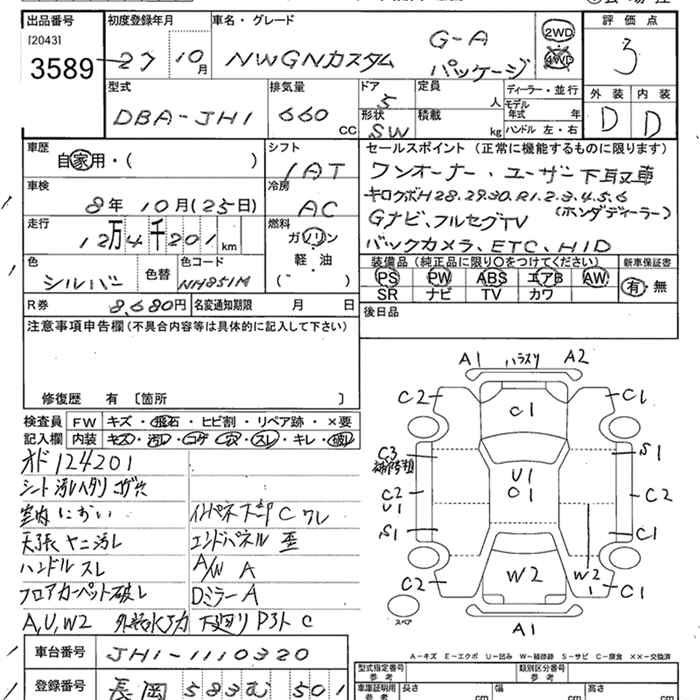 出品番号 初度登録年月 車名・グレード 評価点
[2043]
3589 27 10月 NWGNカスタム G-A パッケージ 2WD 4WD 3
型式 排気量 ドア 定員 ディーラー・並行 外装 内装
DBA-JH1 660 CC 5 人 モデル年式 年 D D
形状 積載 ハンドル 左・右
SW kg
車歴 シフト セールスポイント (正常に機能するものに限ります)
自家用・( ) IAT ワンオーナー、ユーザー下取車
車検 冷房 キロクボH28.29.30.R1.2.3.4.5.6
8年 10月(25日) AC (ホンダディーラー)
走行 燃料 Gナビ、フルセグTV
12万4千201km ガソリン バックカメラ、ETC、HID
軽・油
( )
色 色替 色コード 装備品 (純正品に限り○をつけてください) 新車保証書
シルバー NH851M PS PW ABS エアB AW 有・無
SR ナビ TV カワ
R券 8,680円 名変通知期限 月 日 後日品
注意事項申告欄(不具合内容等は具体的に記入して下さい)
修復歴 有 〔箇所 〕
検査員 FW キズ・飛石・ヒビ割・リペア跡・×要
記入欄 内装 キズ・汚レ・コゲ・穴・スレ・キレ・破レ
オド124201
シート汚レヘタリコゲ穴
室内におい インパネ下部Cワレ
天張ヤニ汚レ エンドパネル歪
ハンドルスレ A/W A
フロアカーペット破レ DミラーA
A,U,W2 下廻り C
A1 ハラスリ A2
C2 C1 C1
C3 S1
U1
C2 C1 C2
U1
S1 C1
C2 W2 W2 C1
スペア
A1
A-キズ E-エクボ U-凹み W-補修跡 S-サビ C-腐食 ××-交換済
車台番号 JH1-1110320 型式指定番号 類別区分番号
参考 参考
登録番号 長岡 583 む 501 車庫証明用 長さ 幅 高さ
参考 cm cm cm